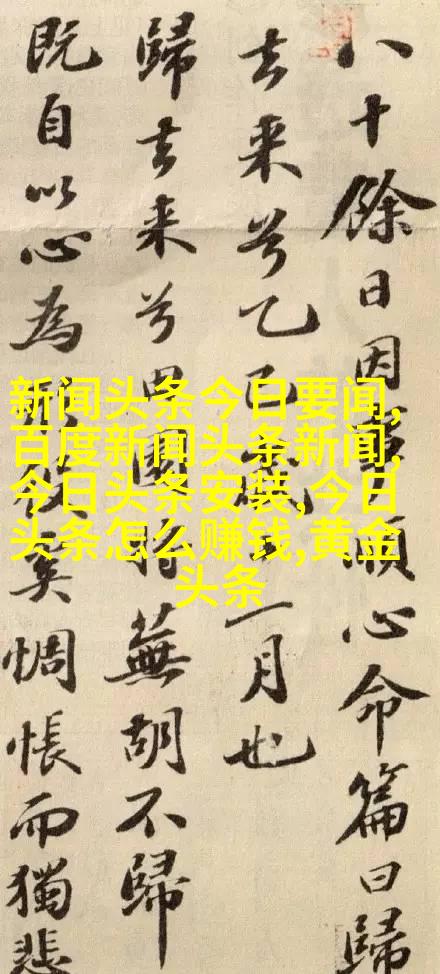 八十餘日因事順心命篇曰歸
去来兮乙巳歲一月也
歸去来兮田園將蕪胡不歸
既自以心為役奚惆悵而獨悲
新闻头条今日要闻,
百度新闻头条新闻,
今日头条安装,今日
头条怎么赚钱,黄金
头条